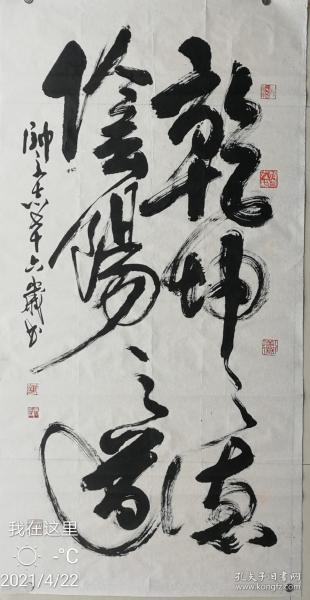 乾坤之德
陰陽之道
帥立志年六歲書
我在这里
-°C
2021/4/22
孔夫子旧书网